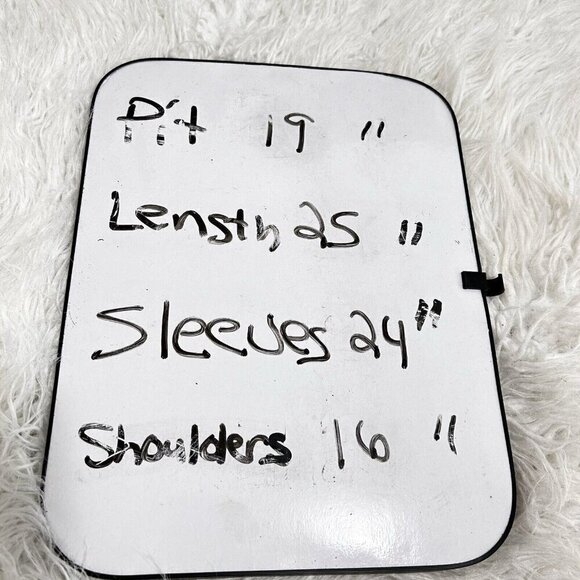 Pit 19 "
Length 25 "
Sleeves 24"
Shoulders 16 "